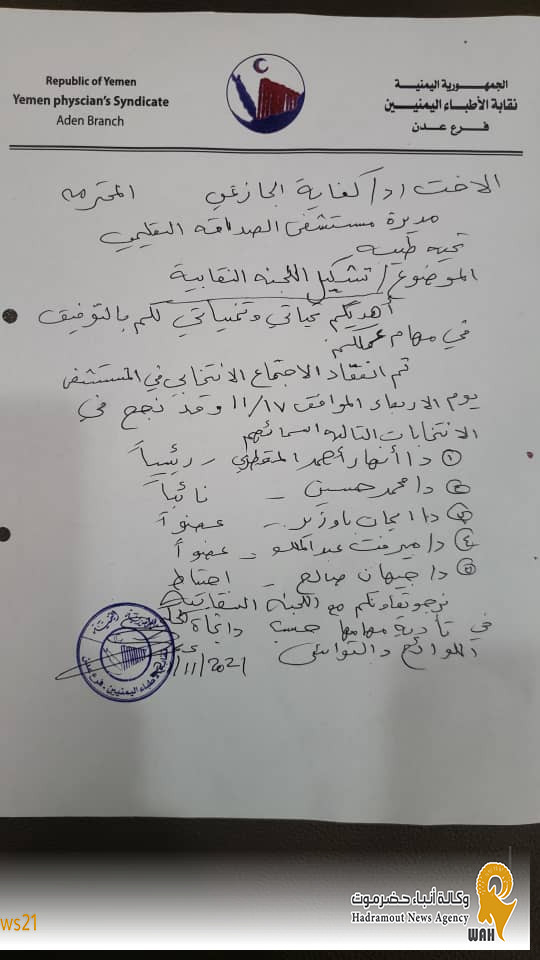 Republic of Yemen
Yemen physcian's Syndicate
Aden Branch
الجمهورية اليمنية
نقابة الأطباء اليمنيين
فرع عدن
الاخت ا.د/ كفاية الجازعي المحترمه
مديرة مستشفى الصداقه التعليمي
تحيه طيبه
الموضوع/ تشكيل اللجنه النقابية
أهديكم تحياتي وتمنياتي لكم بالتوفيق
في مهام عملكم
تم انعقاد الاجتماع الانتخابي في المستشفى
يوم الاربعاء الموافق ١١/١٧ وقد نجح في
الانتخابات التاليه اسمائهم
١ د/ أنهار أحمد - رئيساً
٢ د/ محمد حسين - نائباً
٣ د/ ايمان باوزير - عضواً
٤ د/ ميرفت عبدالملك - عضواً
٥ د/ جيهان صالح - احتياط
نرجو تعاونكم مع اللجنه النقابية
في تأدية مهامها حسب
اللوائح
/11/2021
ws21
وكالة أنباء حضرموت
Hadramout News Agency
WAH